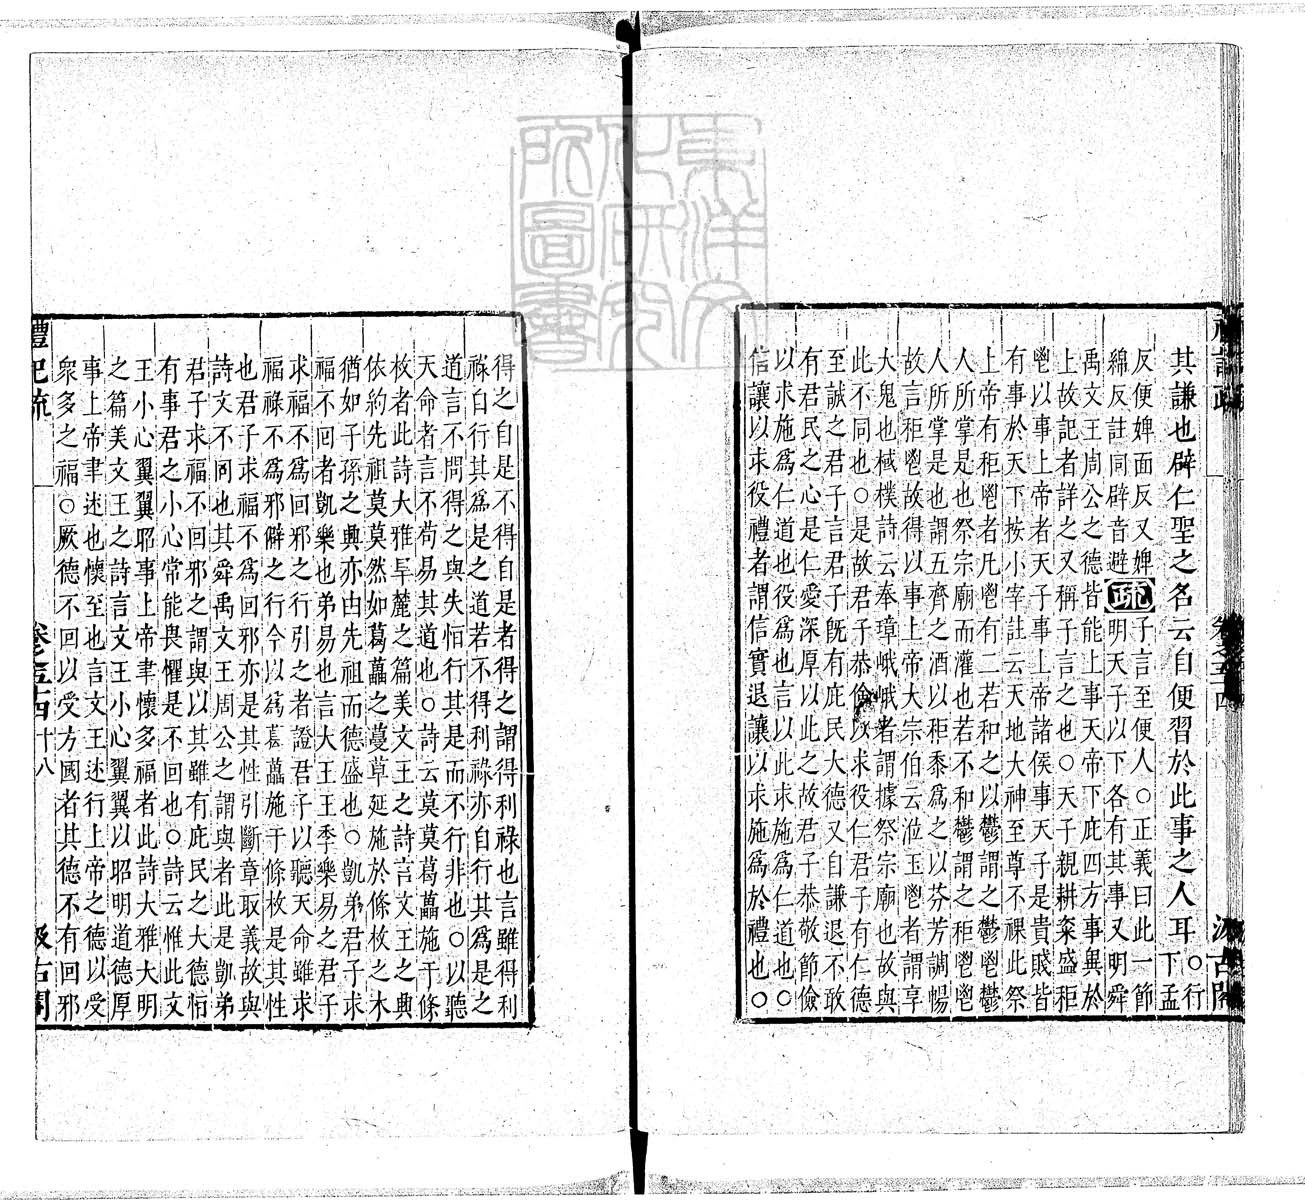 其謙也辟仁聖之名云自便習於此事之人耳○行下孟
反便婢面反又婢
綿反註同辟音避
疏
子言至便人○正義曰此一節
明天子以下各有其事又明舜
禹文王周公之德皆能上事天帝下庇四方事異於
上故記者詳之又稱子言之也○天子親耕粢盛秬
鬯以事上帝者天子事上帝諸侯事天子是貴賤皆
有事於天下按小宰註云天地大神至尊不祼此祭
上帝有秬鬯者凡鬯有二若和之以鬱謂之鬱鬯鬱
人所掌是也祭宗廟而灌也若不和鬱謂之秬鬯鬯
人所掌是也謂五齊之酒以秬黍爲之以芬芳調暢
故言秬鬯故得以事上帝大宗伯云涖玉鬯者謂享
大鬼也棫樸詩云奉璋峨峨者謂據祭宗廟也故與
此不同也○是故君子恭儉以求役仁君子有仁德
至誠之君子言君子旣有庇民大德又自謙退不敢
有君民之心是仁愛深厚以此之故君子恭敬節儉
以求施爲仁道也役爲也言以此求施爲仁道也○
信讓以求役禮者謂信實退讓以求施爲於禮也○
得之自是不得自是者得之謂得利祿也言雖得利
祿自行其爲是之道若不得利祿亦自行其爲是之
道言不問得之與失恒行其是而不行非也○以聽
天命者言不苟易其道也○詩云莫莫葛藟施于條
枚者此詩大雅旱麓之篇美文王之詩言文王之典
依約先祖莫莫然如葛藟之蔓草延施於條枚之木
猶如子孫之興亦由先祖而德盛也○凱弟君子求
福不回者凱樂也弟易也言大王王季樂易之君子
求福不爲回邪之行引之者證君子以聽天命雖求
福祿不爲邪僻之行今以爲葛藟施于條枚是其性
也君子求福不爲回邪亦是其性引斷章取義故與
詩文不同也其舜禹文王周公之謂與者此是凱弟
君子求福不回邪之謂與以其雖有庇民之大德恒
有事君之小心常能畏懼是不回也○詩云惟此文
王小心翼翼昭事上帝聿懷多福者此詩大雅大明
之篇美文王之詩言文王小心翼翼以昭明道德厚
事上帝聿述也懷至也言文王述行上帝之德以受
衆多之福○厥德不回以受方國者其德不有回邪
禮記疏
卷之五十四
十八
汲古閣
東洋文化研究所圖書